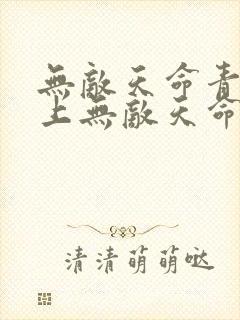 無敵天命青
上無敵天命
清清萌萌哒